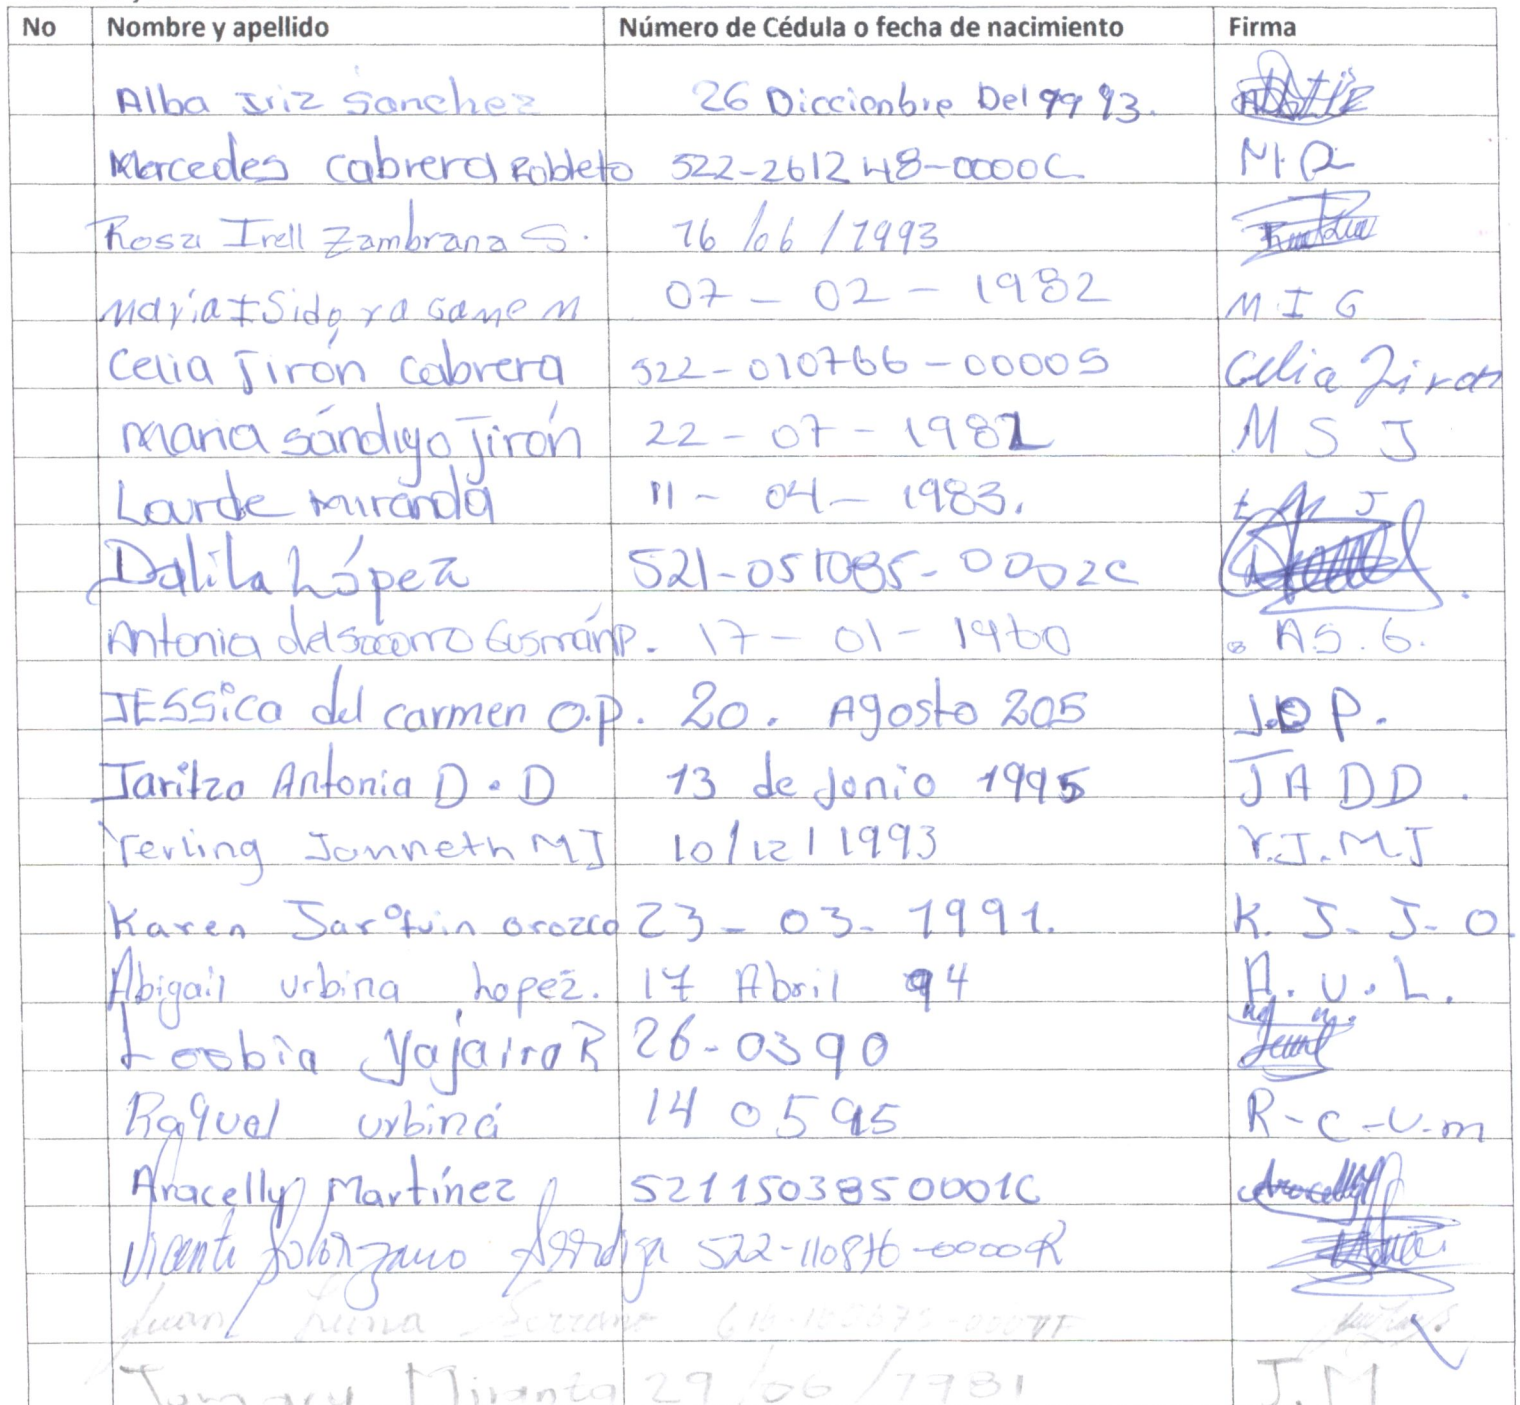 No Nombre y apellido Número de Cédula o fecha de nacimiento Firma
Alba Iriz Sanchez 26 Diccienbre Del 1993.
Mercedes cabrera Robleto 522-261248-0000C M.R
Rosa Irell Zambrana S. 16/06/1993
Maria ISidora Game M 07-02-1982 M I G
Celia Jirón Cabrera 522-010766-0000S Celia Jiron
Maria sándigo Jirón 22-07-1982 M S J
Lourde miranda 11-04-1983.
Dalila López 521-051085-0002C
Antonia del Socorro Gusmán P. 17-01-1960 A S. G.
JESSica del carmen O.P. 20. Agosto 205 J.O P.
Jaritza Antonia D.D 13 de Junio 1995 J A D D.
Yerling Janneth M J 10/12/1993 Y.J.M.J
Karen Jarquin orozco 23-03-1991. K. J. J-O.
Abigail urbina Lopez. 17 Abril 94 A.U.L.
Yajaira R 26-0390
Raquel urbina 14 0595 R-C-U-m
Aracelly Martínez 5211503850001C Aracelly
Vicente Solorzano 522-110876-0000R
Juan Luna Serrano
Miranta 29/06/1981 J.M